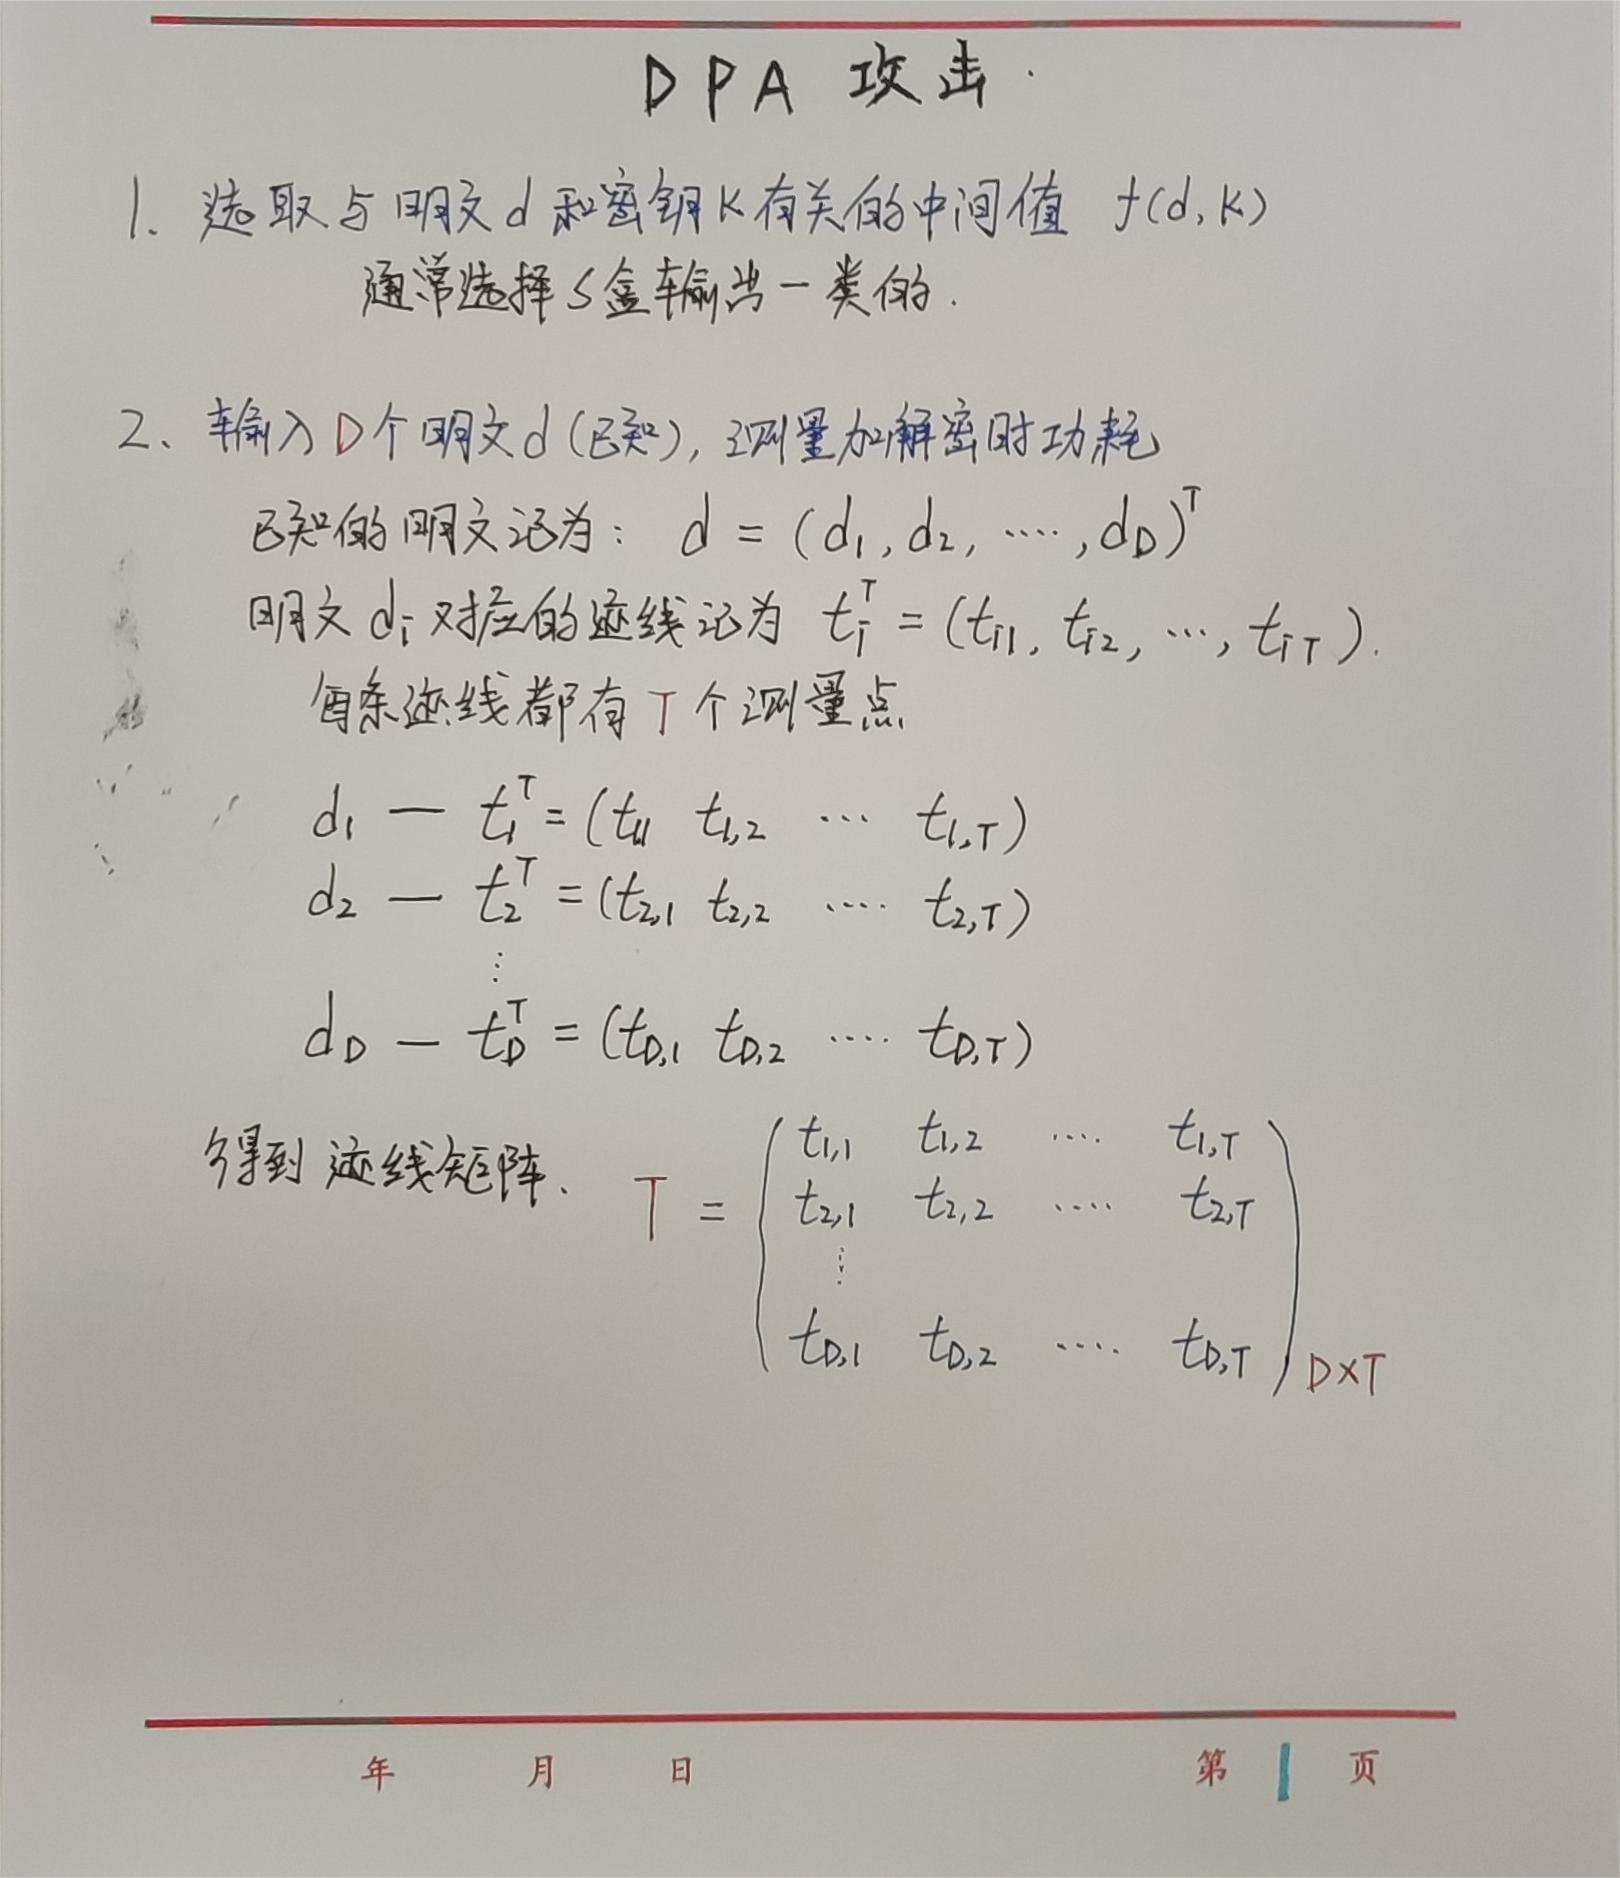 DPA 攻击.
1. 选取与明文d和密钥K有关的中间值 f(d,K)
通常选择S盒输出一类的.
2、输入D个明文d(已知),测量加解密时功耗
已知的明文记为: d = (d₁, d₂, ····, d_D)ᵀ
明文 dᵢ 对应的迹线记为 tᵢᵀ = (tᵢ₁, tᵢ₂, ···, tᵢT).
每条迹线都有T个测量点
d₁ — t₁ᵀ = (t₁₁ t₁,₂ ··· t₁,T)
d₂ — t₂ᵀ = (t₂,₁ t₂,₂ ···· t₂,T)
⋮
d_D — t_Dᵀ = (t_D,₁ t_D,₂ ···· t_D,T)
得到迹线矩阵、 T = ( t₁,₁ t₁,₂ ···· t₁,T
t₂,₁ t₂,₂ ···· t₂,T
⋮
t_D,₁ t_D,₂ ···· t_D,T ) D×T
年 月 日 第 1 页